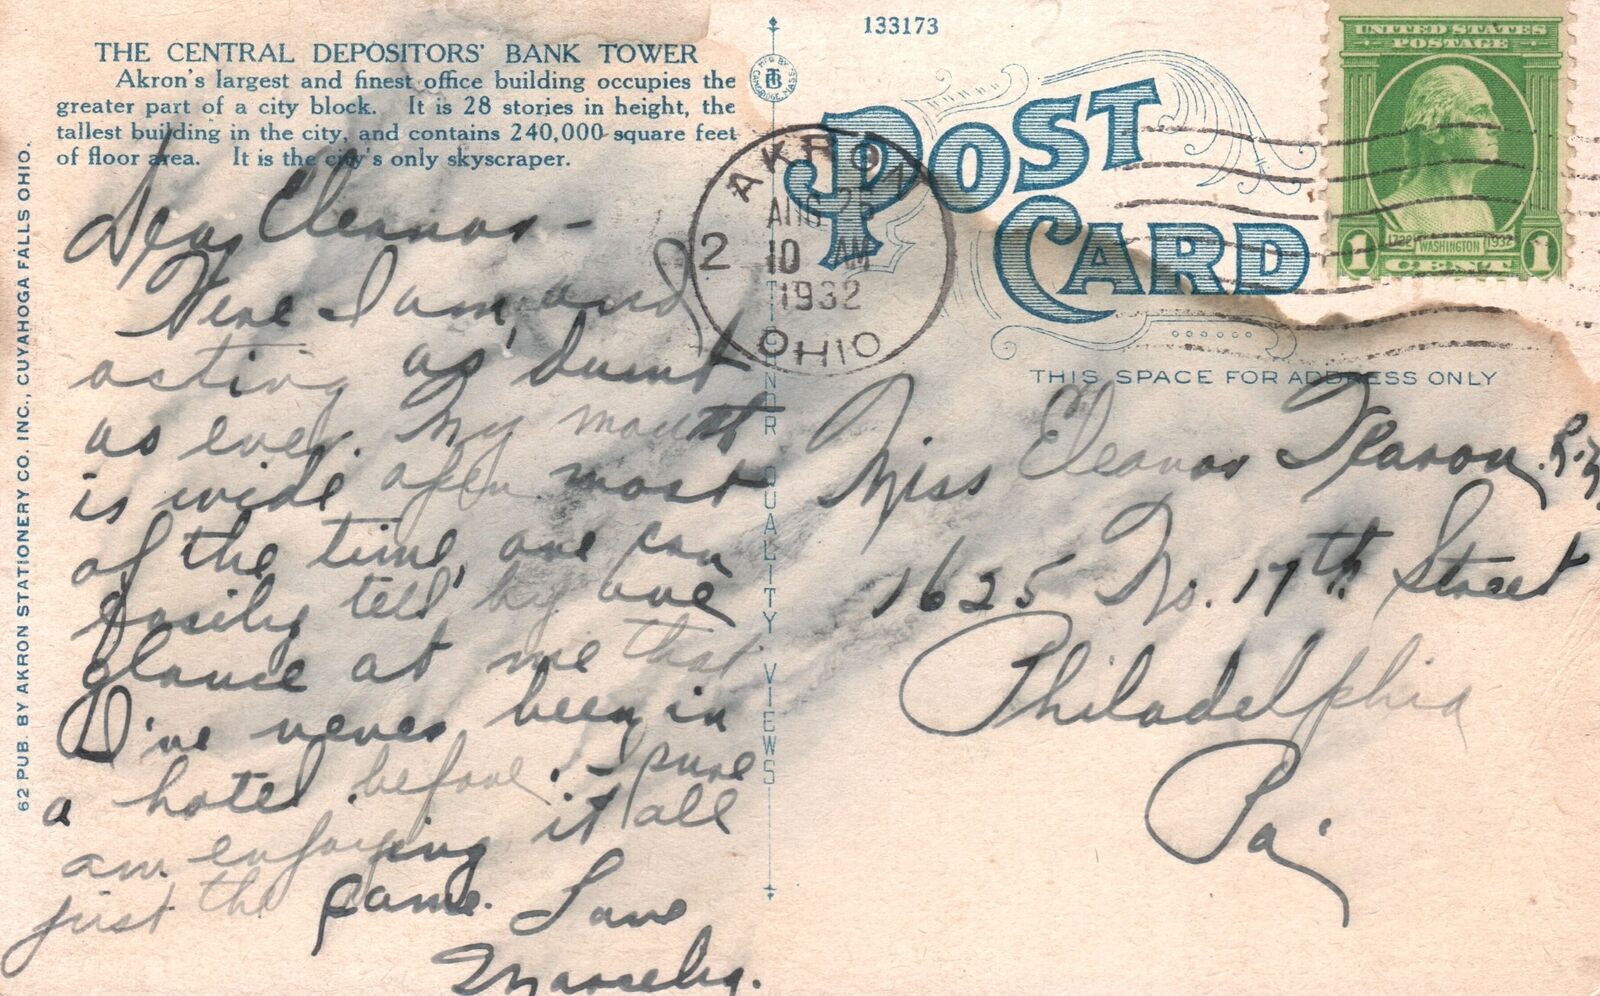 THE CENTRAL DEPOSITORS' BANK TOWER
Akron's largest and finest office building occupies the
greater part of a city block. It is 28 stories in height, the
tallest building in the city, and contains 240,000 square feet
of floor area. It is the city's only skyscraper.
62 PUB. BY AKRON STATIONERY CO. INC., CUYAHOGA FALLS OHIO.
Dear Eleanor -
Here I am, and
acting as dumb
as ever. My mouth
is wide open most
of the time, one can
easily tell by one
glance at me that
I've never been in
a hotel before. - sure
am enjoying it all
just the same. Love
133173
MFG BY
CAMBRIDGE, MASS.
POST
CARD
AKRON
AUG 25
10 AM
2
1932
OHIO
UNITED STATES
POSTAGE
1732 WASHINGTON 1932
1 CENT 1
THIS SPACE FOR ADDRESS ONLY
QUALITY VIEWS
Miss Eleanor
1625 No. 17th Street
Philadelphia
Pa.